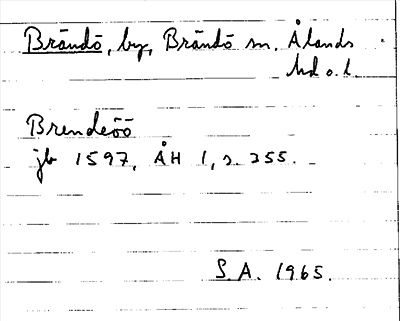 Brändö, by, Brändö sn. Ålands
hd o. l.
Brendeöö
jb 1597, ÅH 1, s. 255.
S.A. 1965.